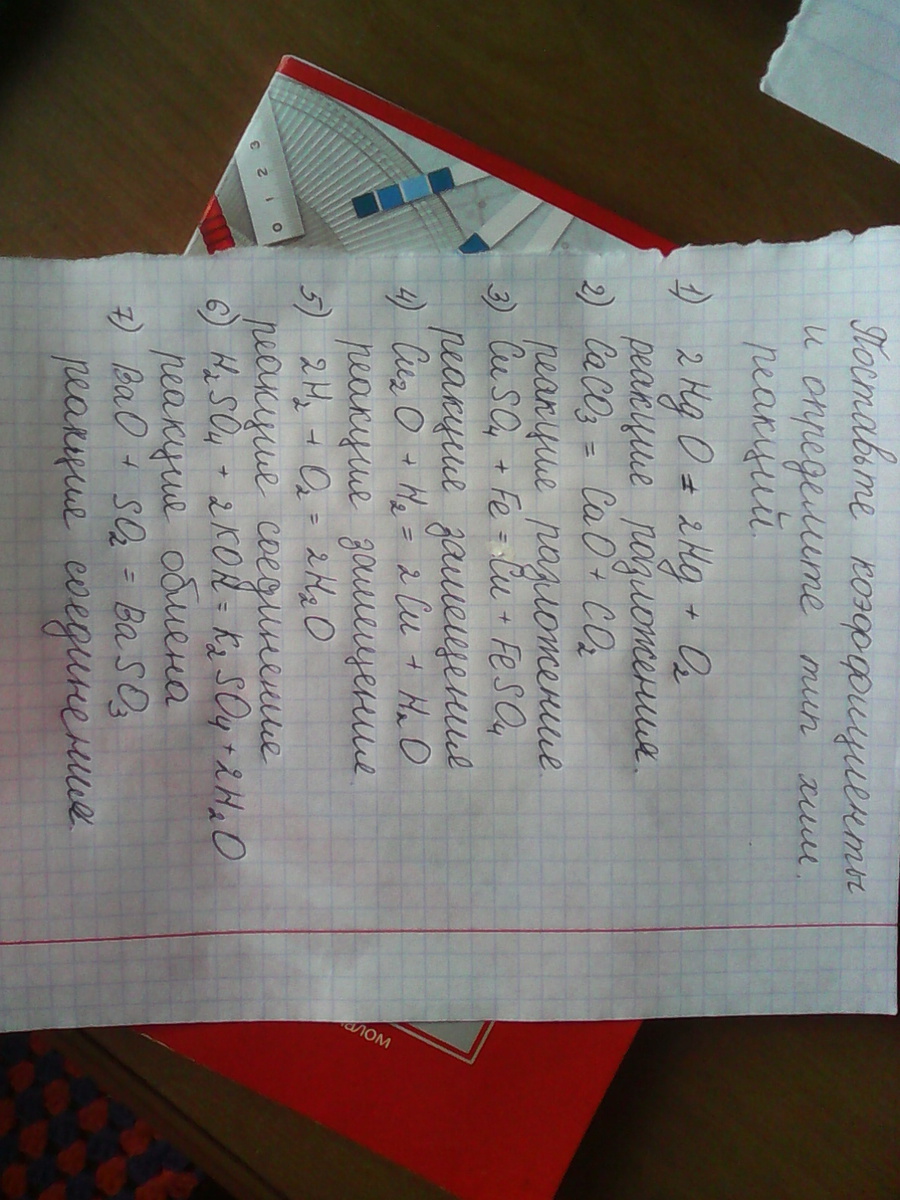 Поставьте коэффициенты
и определите тип хим.
реакций.
1) 2HgO = 2Hg + O₂
реакция разложения.
2) CaCO₃ = CaO + CO₂
реакция разложение.
3) CuSO₄ + Fe = Cu + FeSO₄
реакция замещения
4) Cu₂O + H₂ = 2Cu + H₂O
реакция замещение.
5) 2H₂ + O₂ = 2H₂O
реакция соединение
6) H₂SO₄ + 2KOH = K₂SO₄ + 2H₂O
реакция обмена
7) BaO + SO₂ = BaSO₃
реакция соединение.
3 2 1 0